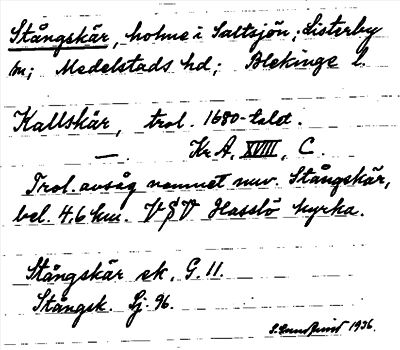 Stångskär, holme i Saltsjön; Listerby
sn; Medelstads hd; Blekinge l.
Kallskär, trol. 1680-talet.
— . Kr.A, XVIII, C.
Trol. avsåg namnet nuv. Stångskär,
bel. 4.6 km. VSV Hasslö kyrka.
Stångskär ek. G. 11.
Stångsk. Sj. 96.
1936.